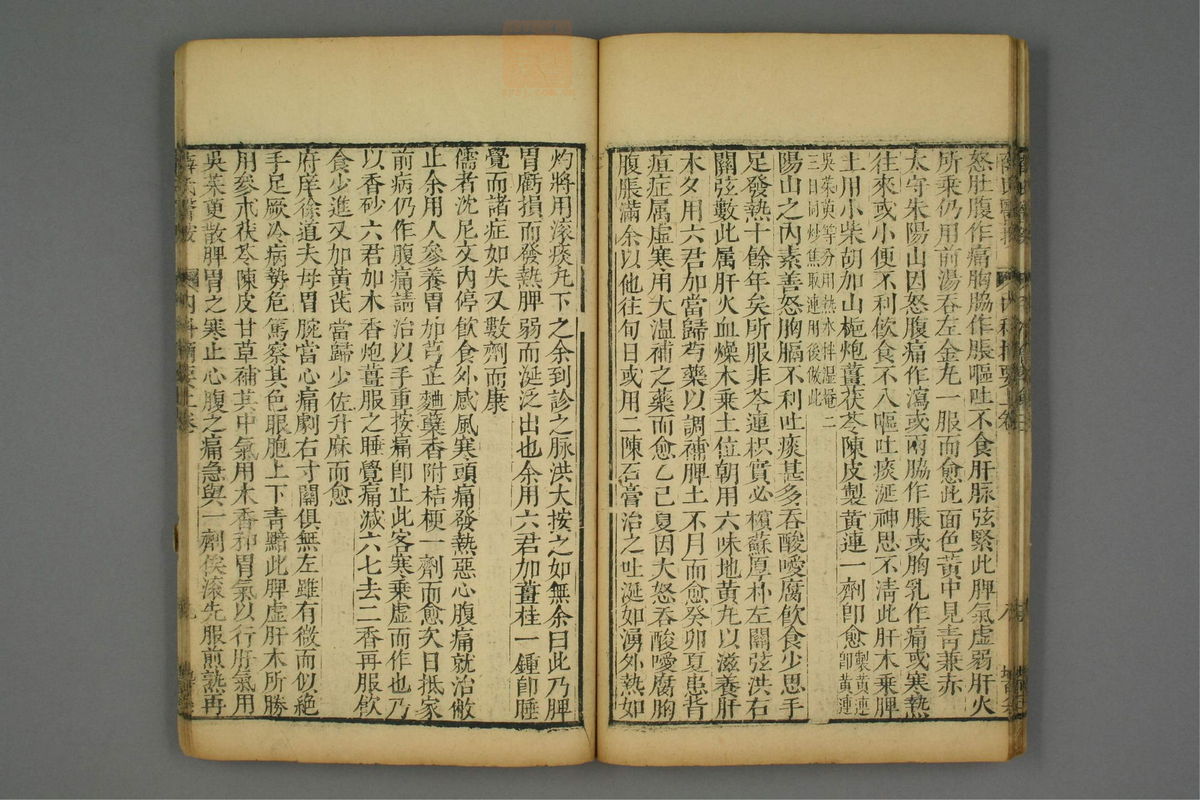 怒肚腹作痛胸脇作脹嘔吐不食肝脉弦緊此脾氣虚弱肝火
所乗仍用前湯吞左金丸一服而愈此面色黄中見青兼赤
太守朱陽山因怒腹痛作瀉或兩脇作脹或胸乳作痛或寒熱
往來或小便不利飲食不入嘔吐痰涎神思不清此肝木乗脾
土用小柴胡加山梔炮薑茯苓陳皮製黄連一劑卽愈製黄連卽黄連
吳茱萸等分用熱水拌湿罨二
三日同炒焦取連用後做此
陽山之内素善怒胸膈不利吐痰甚多吞酸噯腐飲食少思手
足發熱十餘年矣所服非芩連枳實必檳蘇厚朴左關弦洪右
關弦數此属肝火血燥木乗土位朝用六味地黄丸以滋養肝
木夕用六君加當歸芍藥以調補脾土不月而愈癸卯夏患背
疽症属虚寒用大温補之藥而愈乙巳夏因大怒吞酸噯腐胸
腹脹滿余以他往旬日或用二陳石膏治之吐涎如湧外熱如
灼將用滚痰丸下之余到診之脉洪大按之如無余曰此乃脾
胃虧損而發熱脾弱而涎泛出也余用六君加薑桂一鍾卽睡
覺而諸症如失又數劑而康
儒者沈尼文内停飲食外感風寒頭痛發熱惡心腹痛就治敝
止余用人參養胃加芎芷麯蘖香附桔梗一劑而愈次日抵家
前病仍作腹痛請治以手重按痛卽止此客寒乗虚而作也乃
以香砂六君加木香炮薑服之睡覺痛減六七去二香再服飲
食少進又加黄芪當歸少佐升麻而愈
府庠徐道夫母胃脘當心痛劇右寸關俱無左雖有微而似絶
手足厥冷病勢危篤察其色眼胞上下青黯此脾虚肝木所勝
用參朮茯苓陳皮甘草補其中氣用木香和胃氣以行肝氣用
吳茱萸散脾胃之寒止心腹之痛急與一劑俟滚先服煎熟再